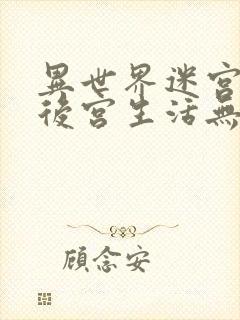 異世界迷宮
後宮生活無
顾念安